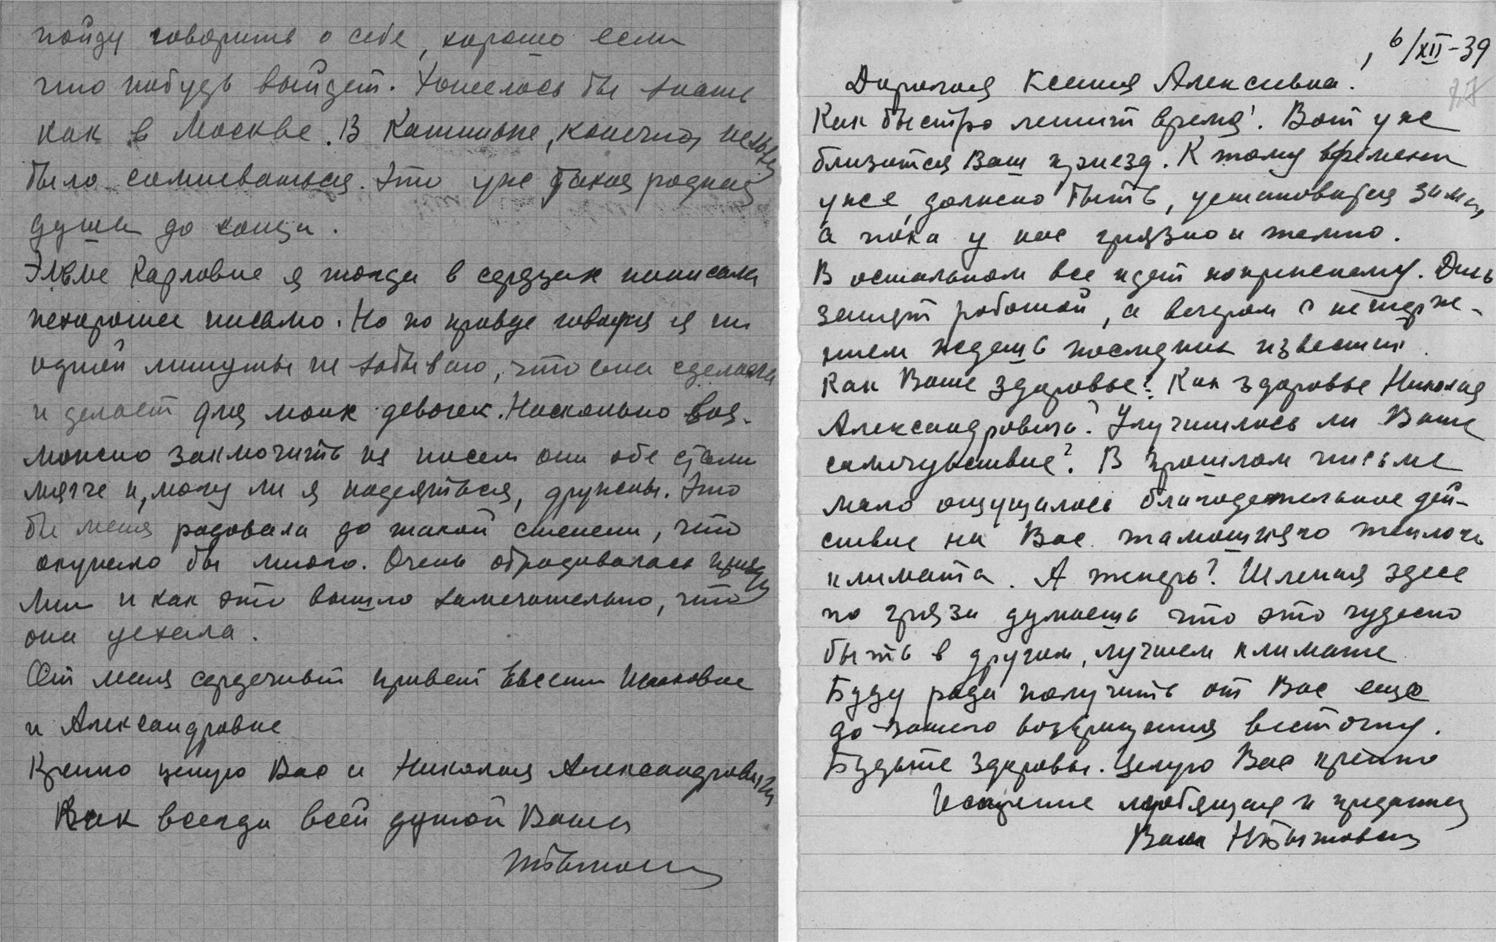 пойду говорить о себе, хорошо если
что нибудь выйдет. Хотелось бы знать
как в Москве. В Кашионе, конечно, нельзя
было сомневаться. Это уже такая родная
душа до конца.
Эльзе Карловне я тогда в сердцах написала
нехорошее письмо. Но по правде говоря я ни
одной минуты не забываю, что она сделала
и делает для моих девочек. Насколько воз-
можно заключить из писем они обе стали
мягче и, могу ли я надеяться, дружны. Это
бы меня радовала до такой степени, что
окупило бы много. Очень обрадовалась
и как это вышло замечательно, что
она уехала.
От меня сердечный привет Евгении Исаковне
и Александровне
Крепко целую Вас и Николая Александровича
Как всегда всей душой Ваша
6/XII-39
27
Дорогая Ксения Алексеевна!
Как быстро летит время! Вот уже
близится Ваш приезд. К тому времени
уже, должно быть, установится зима,
а пока у нас грязно и темно.
В остальном все идет попрежнему. День
занят работой, а вечером с нетерпе-
нием ждешь последних известий.
Как Ваше здоровье? Как здоровье Николая
Александровича? Улучшилось ли Ваше
самочувствие? В прошлом письме
мало ощущалось благодетельное дей-
ствие на Вас тамошнего теплого
климата. А теперь? Шлепая здесь
по грязи думаешь что это чудесно
быть в другом, лучшем климате
Буду рада получить от Вас еще
до Вашего возвращения весточку.
Будьте здоровы. Целую Вас крепко
Искренне любящая и преданная
Ваша